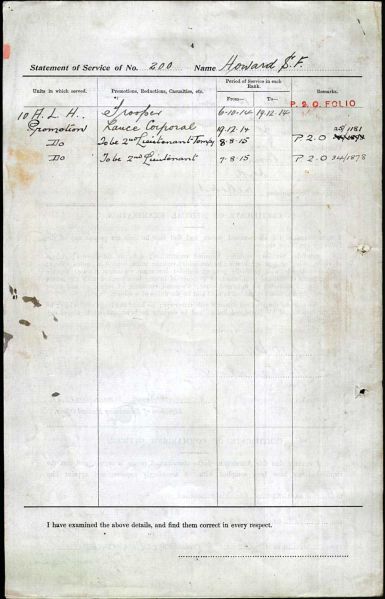 4
Statement of Service of No. 200 Name Howard S. F.
Units in which served. Promotions, Reductions, Casualties, etc. Period of Service in each Rank. Remarks.
From— To—
P. & O. FOLIO
10 A. L. H. Trooper 6-10-14 19.12.14
Promotion Lance Corporal 19.12.14
Do To be 2nd Lieutenant Tempy 8-8-15 P 2.0 25/1181
Do To be 2nd Lieutenant 7.8.15 P 2.0 34/1878
I have examined the above details, and find them correct in every respect.